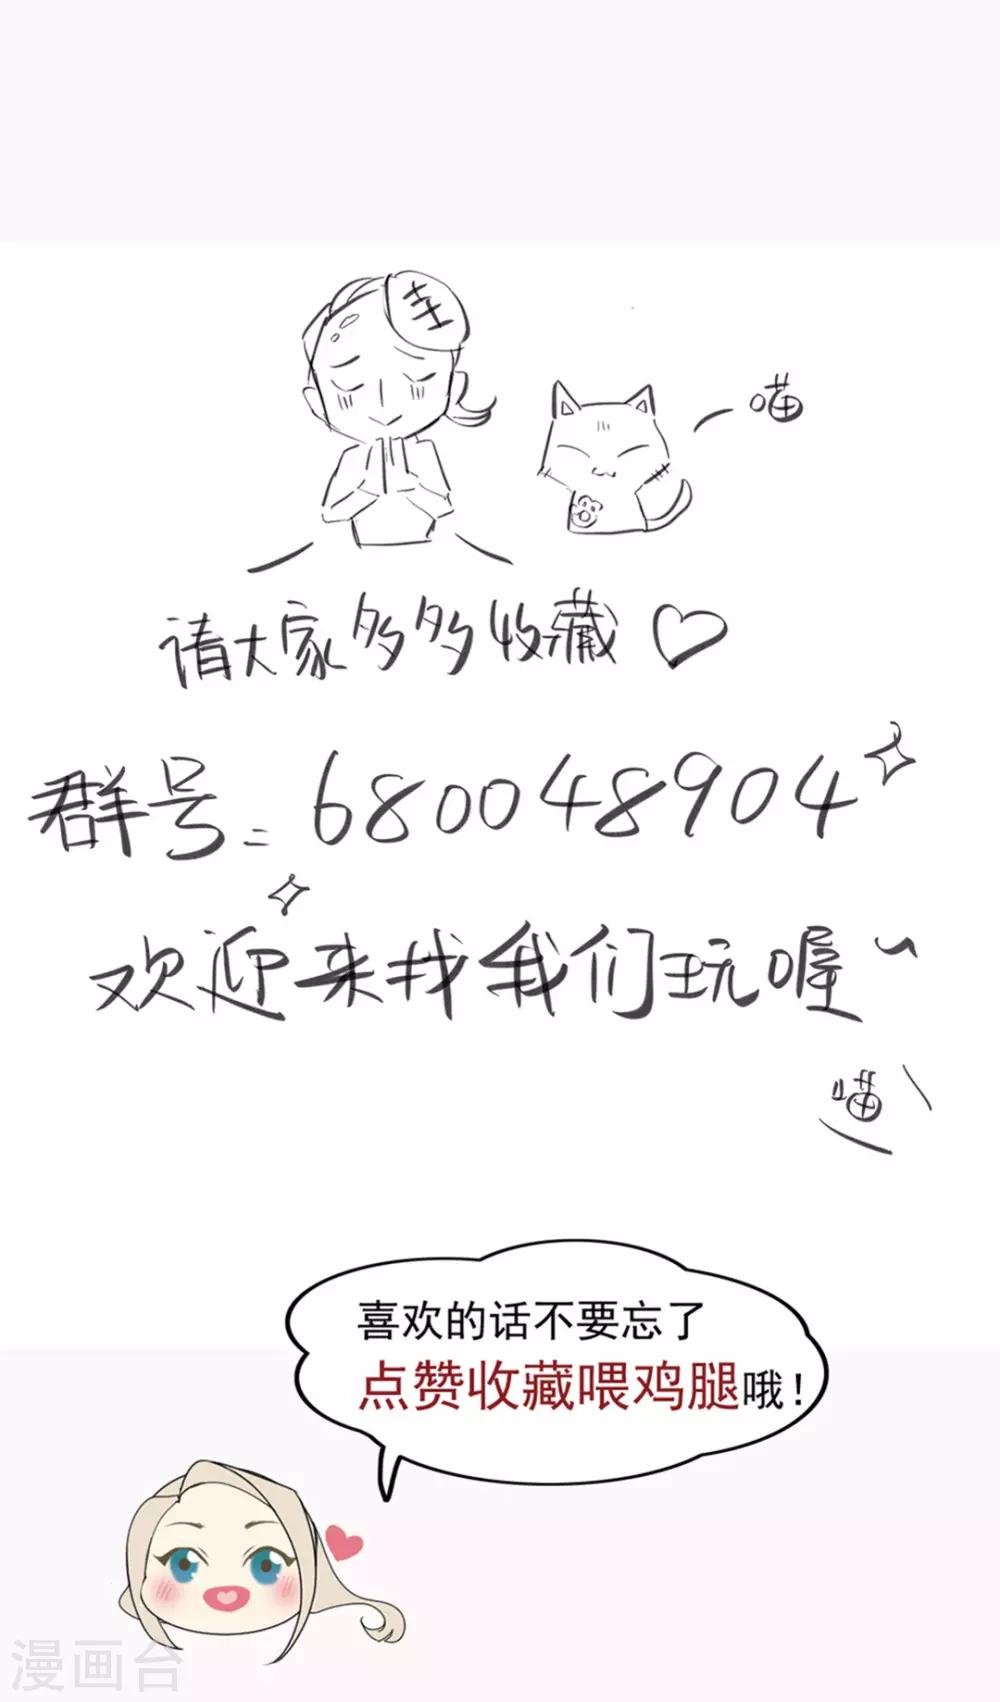 喵
请大家多多收藏♡
群号：680048904
欢迎来找我们玩喔~
喵
喜欢的话不要忘了
点赞收藏喂鸡腿哦！
漫画台